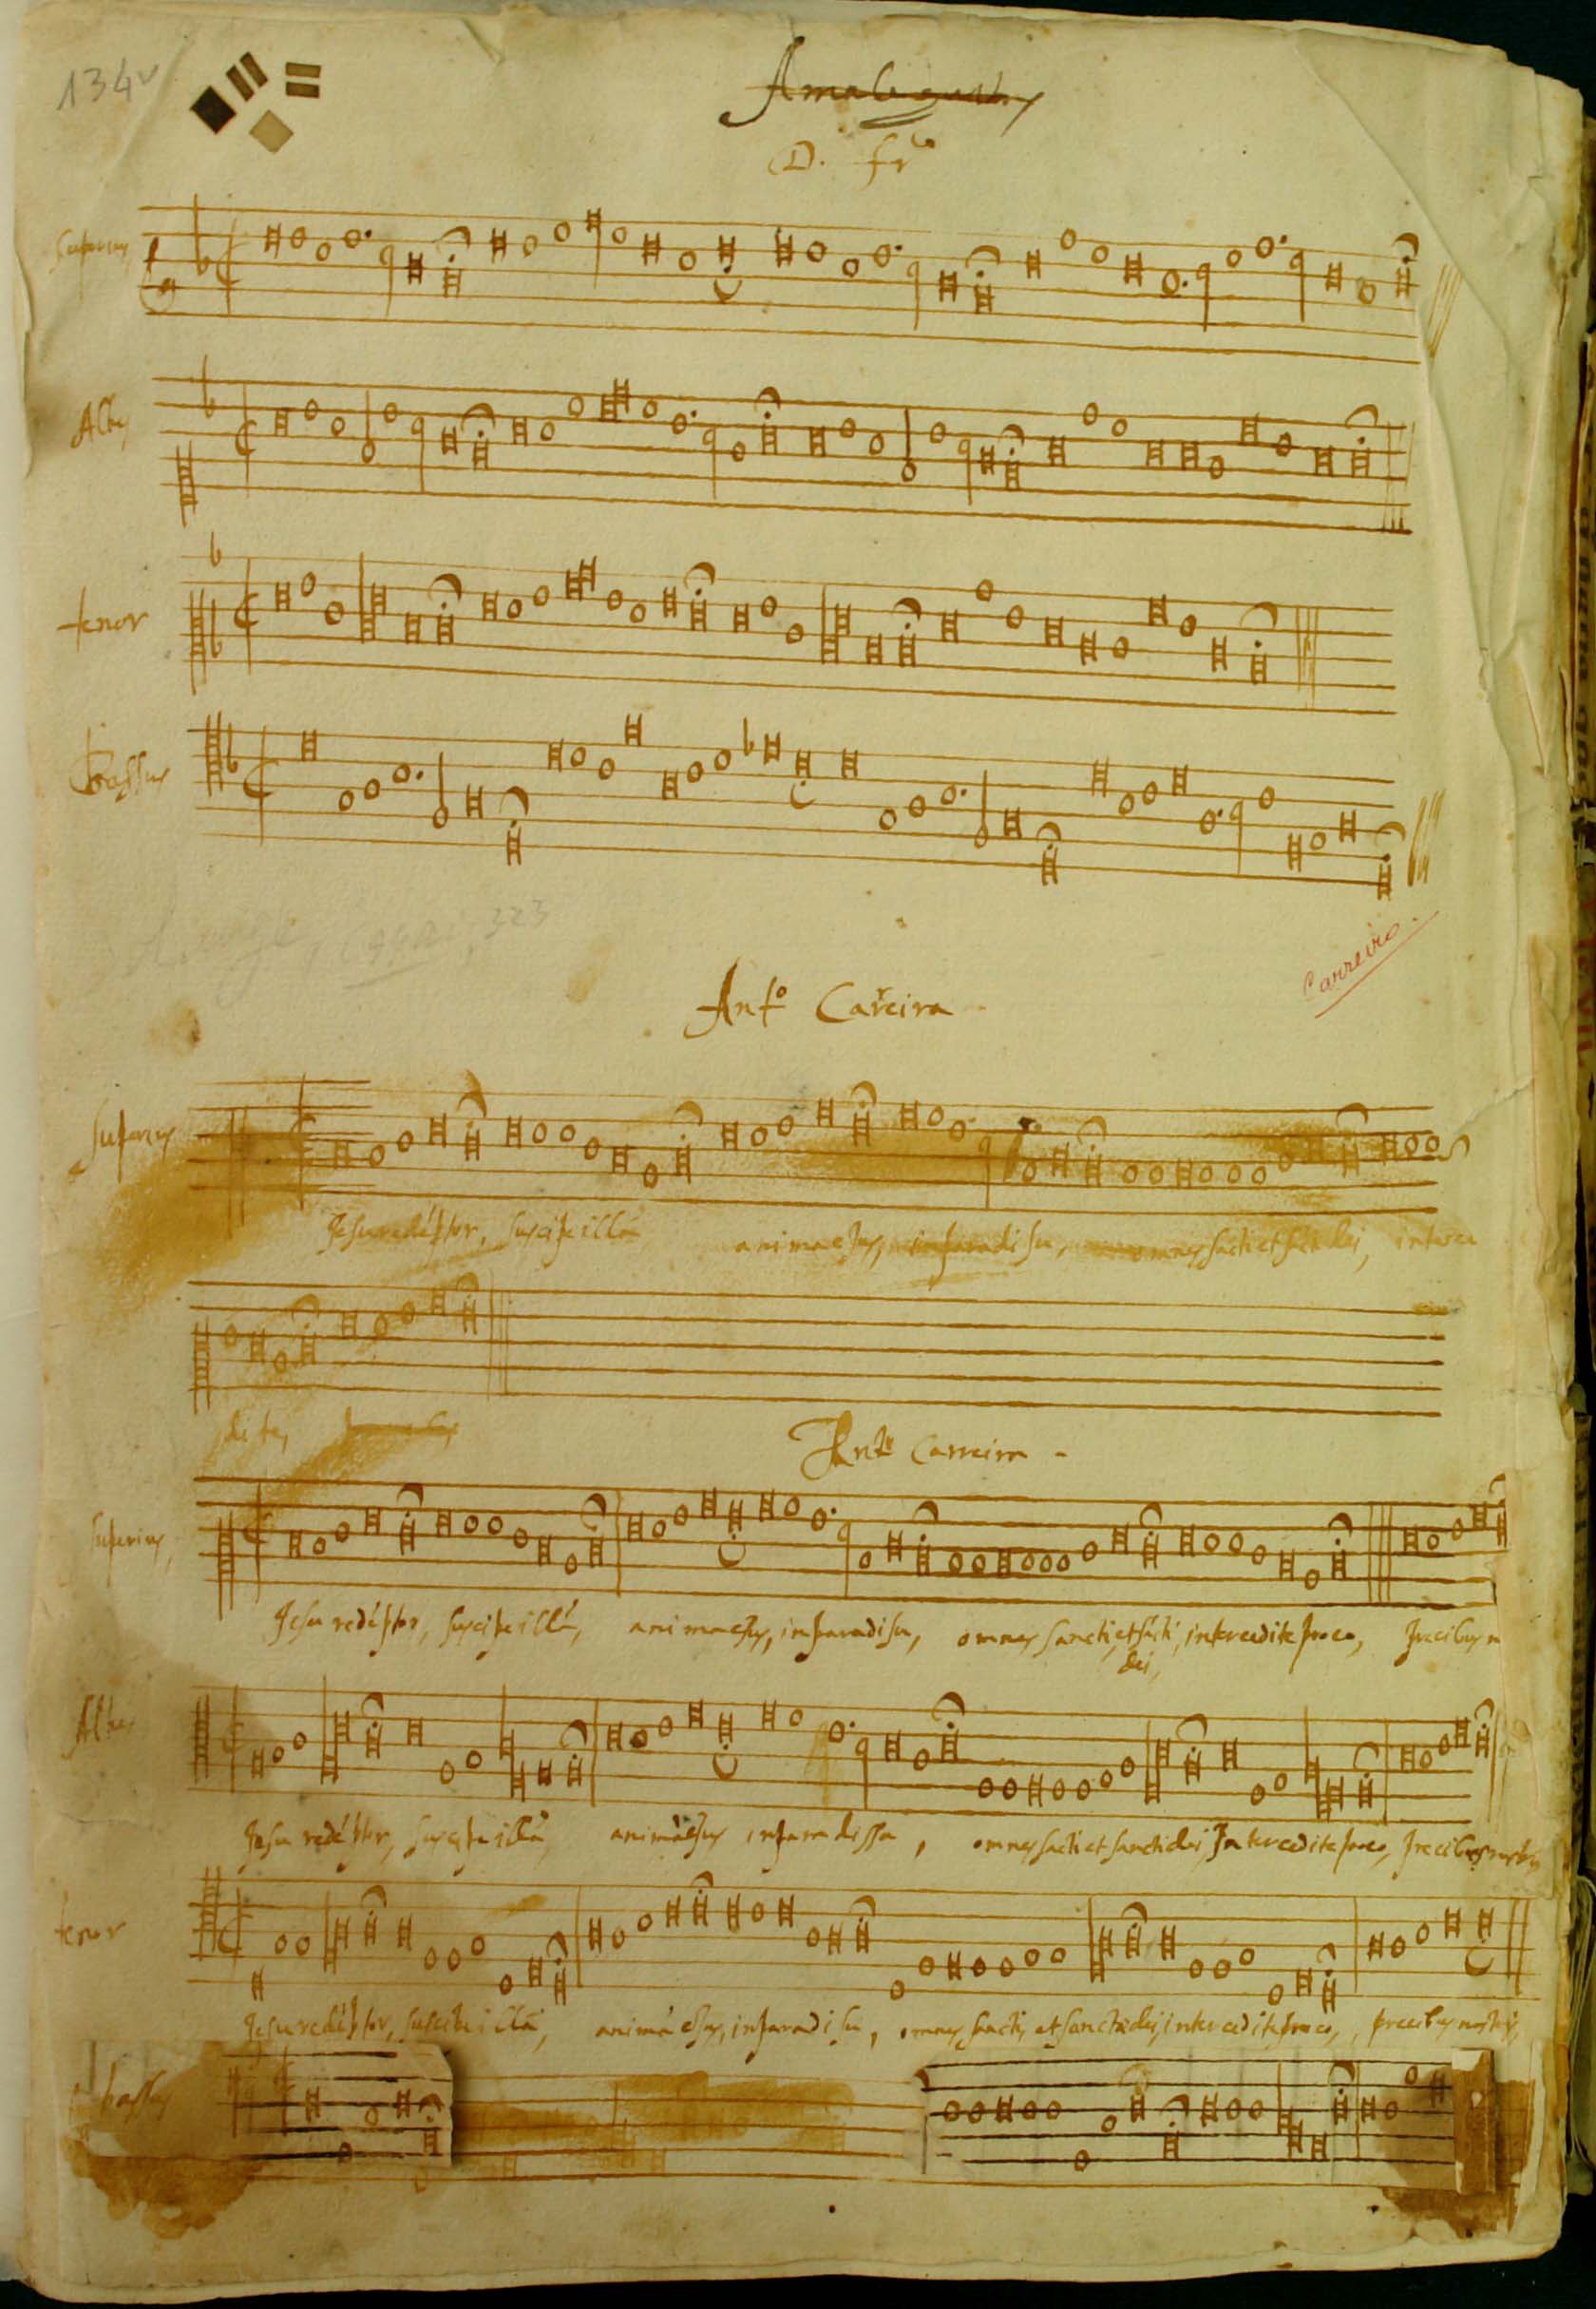 134v
D. frco
Superius
Altus
tenor
Bassus
323
Carreiro.
Anto Carreira
Superius
Jesu redẽptor, suscipe illã animaejus, in paradisu, omnes sãcti et sãcti dei, interce
dite,
Anto Carreira
Superius
Jesu redẽptor, suscipe illã, anima ejus, in paradisu, omnes sancti, et sãcti, intercedite pro eo, precibus n
dei,
Altus
Jesu redẽptor, suscipe illã animã ejus in paradissu, omnes sãcti et sancti dei Intercedite pro eo, precibus nostris
tenor
Jesu redẽptor, suscipe illã, animã ejus, in paradisu, omnes sancti, et sancti dei, intercedite pro eo, precibus nostris,
bassus